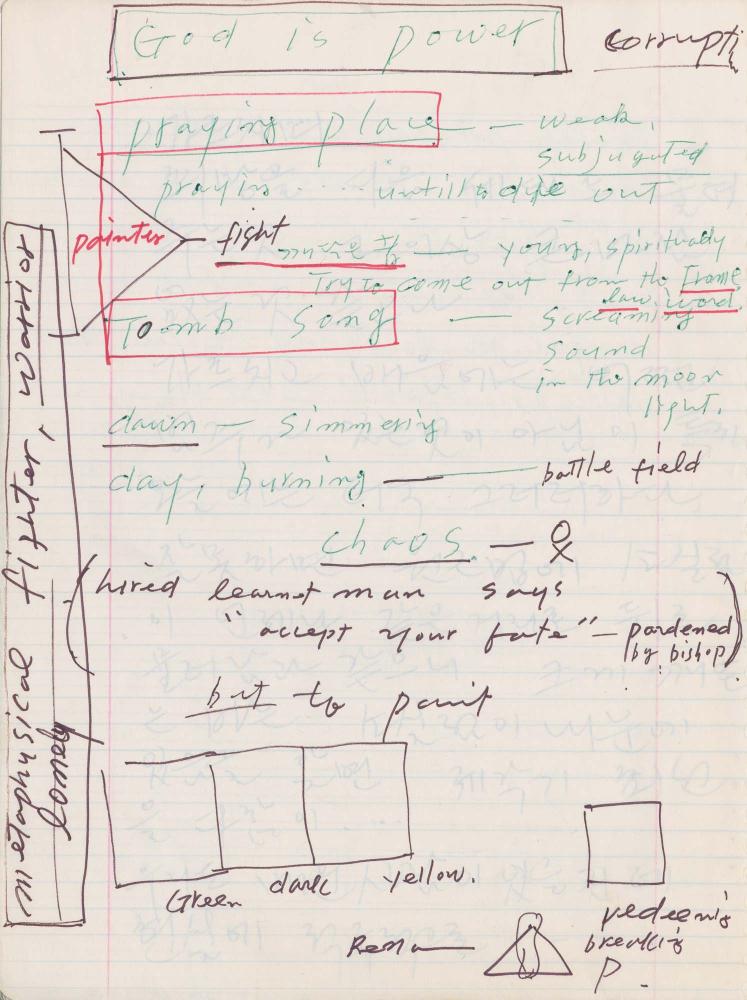 God is power
Corrupti
praying place — weak,
subjugated
prayin.... untill to die out
painter — fight
— young, spiritually
Try to come out from the Frame
law. word.
Tomb song — screaming
sound
in the moon
light.
dawn — simmering
day, burning — battle field
chaos. —
(hired learnet man says
"accept your fate" — pardened
by bishop)
but to paint
Green dark yellow.
redeemig
breaking
P.
metaphysical fighter, warrior
lonely